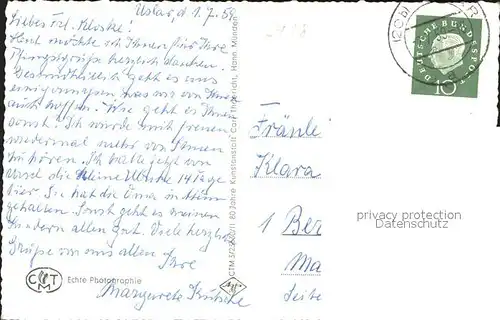 Uslar, d. 1.7.59
Liebes Frl. Kloske!
Heut möchte ich Ihnen für Ihre
Pfingstgrüße herzlich danken.
Gesundheitlich geht es uns
einigermaßen, was wir von Ihnen
auch hoffen. Wie geht es Ihnen
sonst? Ich würde mich freuen
wiedermal mehr von Ihnen
zu hören. Ich hatte jetzt von
die kleine 14 Tage
hier. Sie hat die Oma in
gehalten. Sonst geht es meinen
Kindern allen gut. Viele herzliche
Grüße von uns allen
Ihre
Margarete
CTM
Echte Photographie
CTM 5/2220/11 80 Jahre Kunstanstalt Carl Thoericht, Hann. Münden
(20b) USLAR
DEUTSCHE BUNDESPOST
10
Fräulei
Klara
1 Ber
Ma
Seite
privacy protection
Datenschutz